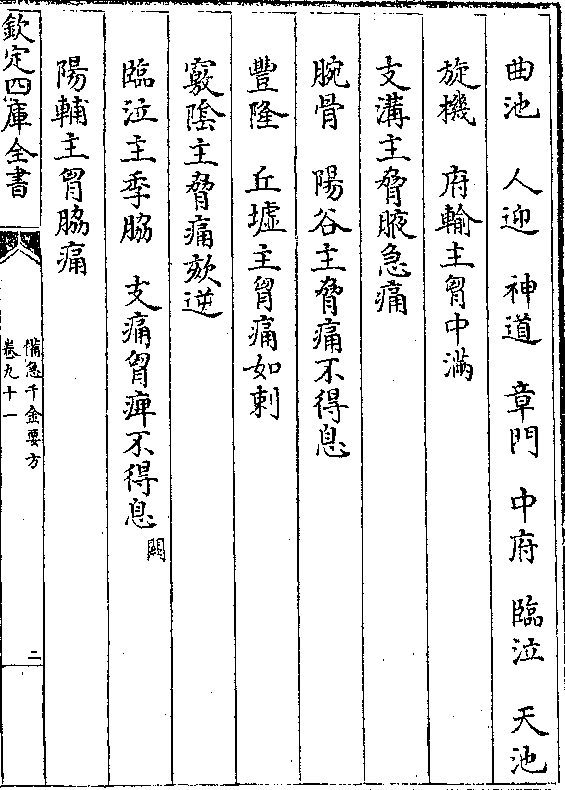 曲池　人迎　神道　章門　中府　臨泣　天池
旋機　府輸主胷中滿
支溝主脅腋急痛
腕骨　陽谷主脅痛不得息
豐隆　丘墟主胷痛如刺
竅陰主脅痛欬逆
臨泣主季脇　支痛胷痺不得息闕
陽輔主胷脇痛
欽定四庫全書
備急千金要方
卷九十一
二